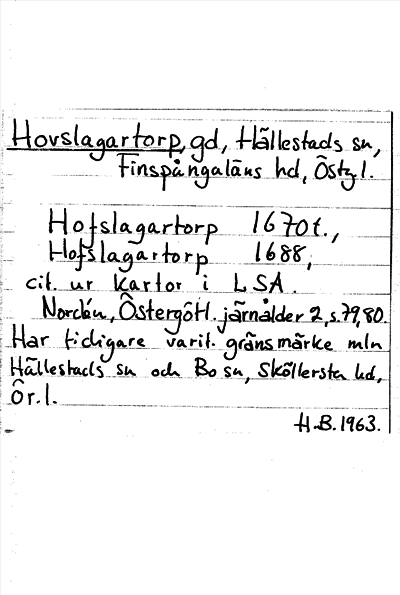 Hovslagartorp, gd, Hällestads sn,
Finspångaläns hd, Östgl.
Hofslagartorp 1670t.,
Hofslagartorp 1688,
cit. ur kartor i LSA.
Nordén, Östergötl. järnålder 2, s. 79, 80.
Har tidigare varit gränsmärke mln
Hällestads sn och Bo sn, Sköllersta hd,
Ör. l.
H.B. 1963.